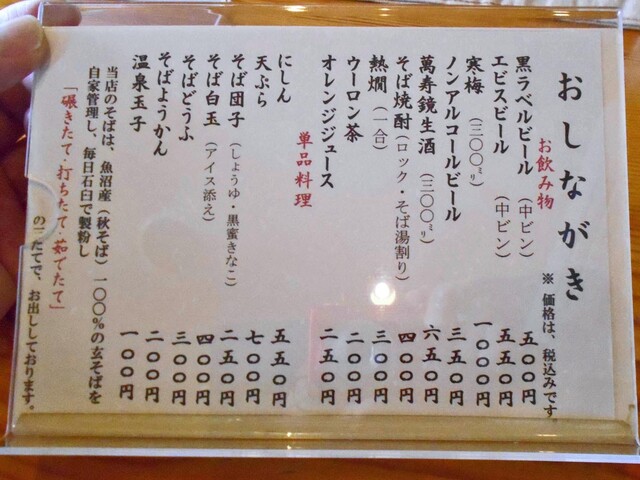 おしながき
※ 価格は、税込みです
お飲み物
黒ラベルビール（中ビン） 五〇〇円
エビスビール（中ビン） 五五〇円
寒梅（三〇〇㍉） 一〇〇〇円
ノンアルコールビール 三五〇円
萬寿鏡生酒（三〇〇㍉） 六五〇円
そば焼酎（ロック・そば湯割り） 四〇〇円
熱燗（一合）
ウーロン茶 二〇〇円
オレンジジュース 二五〇円
単品料理
にしん 五五〇円
天ぷら 七〇〇円
そば団子（しょうゆ・黒蜜きなこ） 二五〇円
そば白玉（アイス添え） 四〇〇円
そばどうふ 三〇〇円
そばようかん 二〇〇円
温泉玉子 一〇〇円
当店のそばは、魚沼産（秋そば）一〇〇%の玄そばを
自家管理し、毎日石臼で製粉し
「碾きたて・打ちたて・茹でたて」
の三たてで、お出ししております。